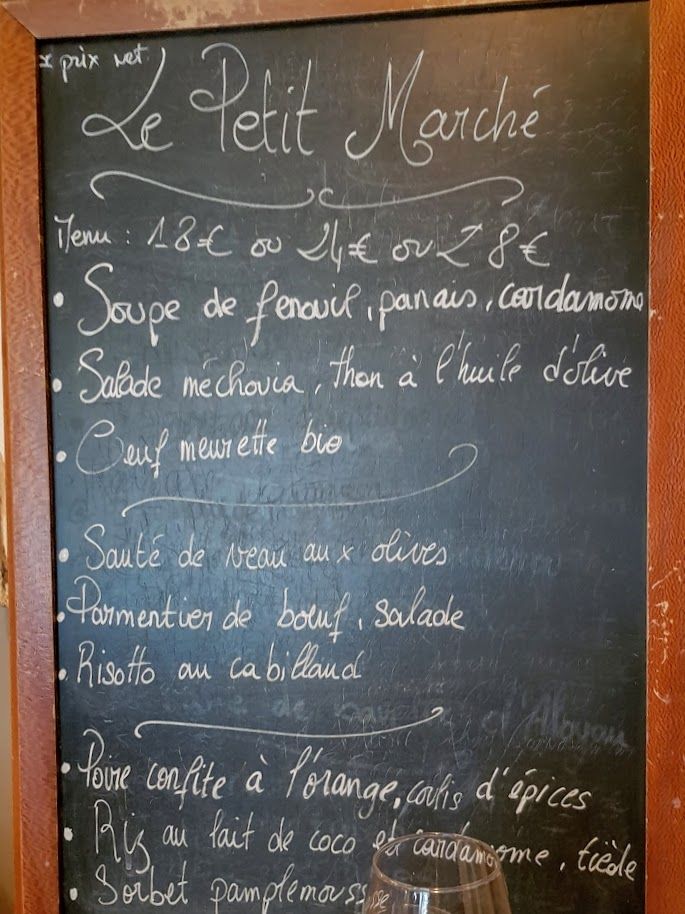 * prix net
Le Petit Marché
Menu : 18€ ou 24€ ou 28€
• Soupe de fenouil, panais, cardamome
• Salade méchouia, thon à l'huile d'olive
• Oeuf meurette bio
• Sauté de veau aux olives
• Parmentier de boeuf, salade
• Risotto au cabillaud
• Poire confite à l'orange, coulis d'épices
• Riz au lait de coco et cardamome, tiède
• Sorbet pamplemousse